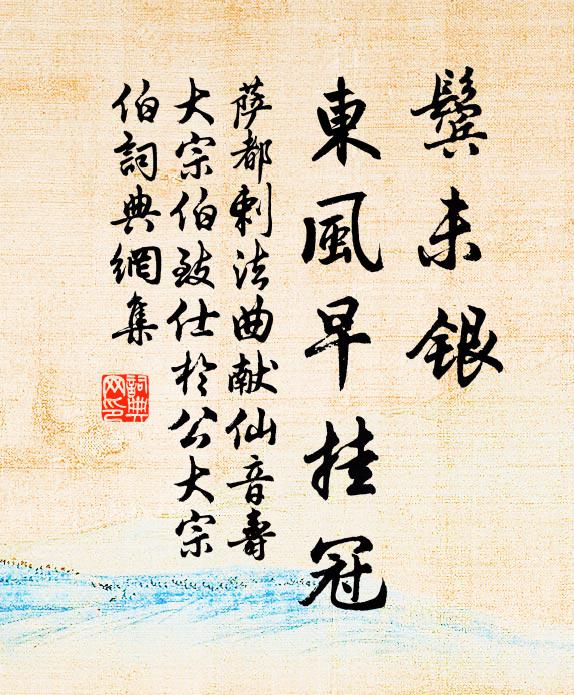 鬓未銀
東風早挂冠
萨都剌法曲献仙音壽
大宗伯致仕於公大宗
伯詞典網集
詞典
网印